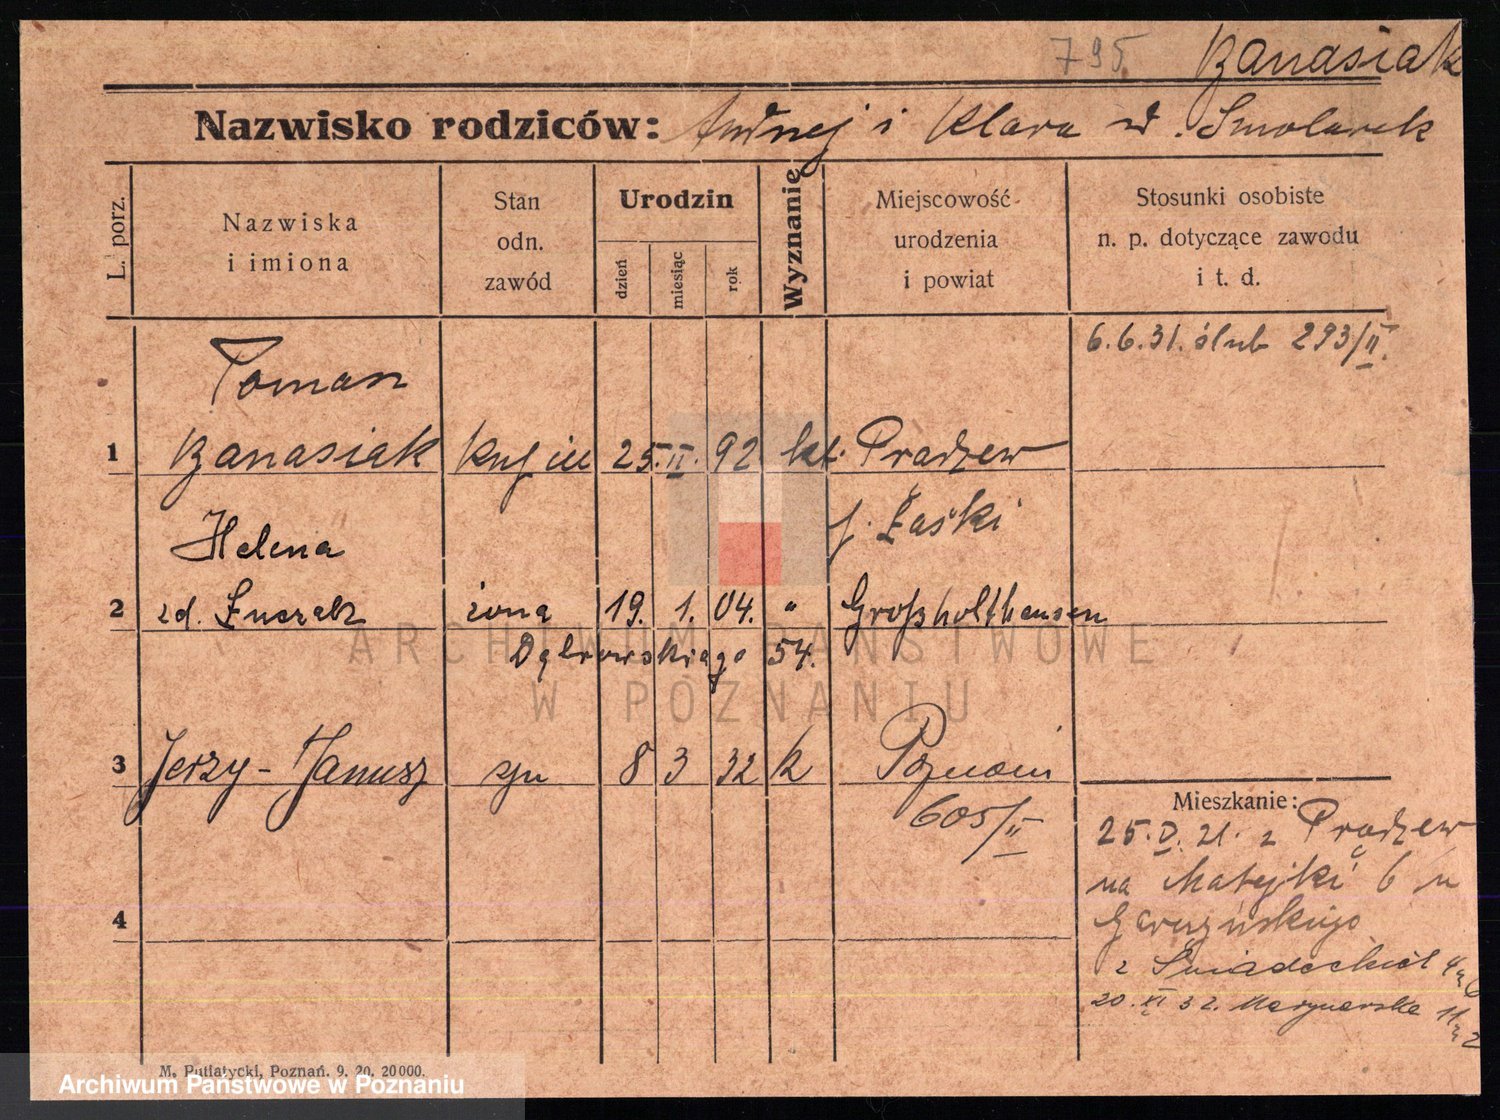 795. Banasiak
Nazwisko rodziców: Andrzej i Klara zd. Smolarek
L. porz.
Nazwiska
i imiona
Stan
odn.
zawód
Urodzin
dzień
miesiąc
rok
Wyznanie
Miejscowość
urodzenia
i powiat
Stosunki osobiste
n. p. dotyczące zawodu
i t. d.
6.6.31. ślub 293/II.
Roman
1 Banasiak kupiec 25. II. 92 kt. Prądzew
p. Łaski
Helena
2 zd. Łuczak żona 19. 1. 04. " Großholthausen
Dąbrowskiego 54.
3 Jerzy-Janusz syn 8 3 32 k Poznań
605/II
Mieszkanie:
25.V.21. z Prądzew
na Matejki 6 u
Garczyńskiego
z Śniadeckich
20.XI 32. Marynarska 11
4
ARCHIWUM PAŃSTWOWE
W POZNANIU
M. Putiatycki, Poznań. 9. 20, 20000.
Archiwum Państwowe w Poznaniu